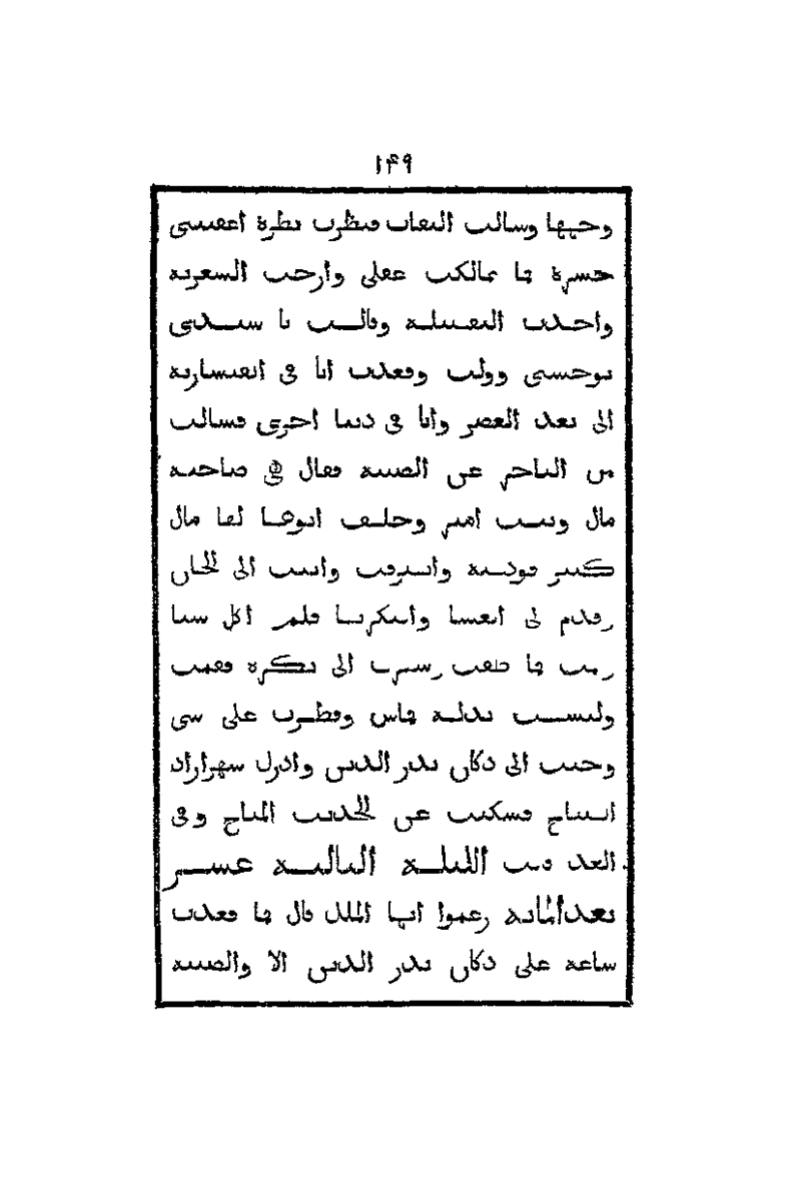 ١٤٩
وجهها وسالت النقاب فنظرت نظرة اعقبتني
حسرة فما تمالكت عقلي وارخت الشعرية
واخذت التفصيلة وقالت يا سيدي
توحشني وولت وقعدت انا في القيسارية
الى بعد العصر وانا في دنيا اخرى فسالت
من التاجر عن الصبية فقال لي صاحبة
مال وبنت امير وخلف ابوها لها مال
كثير فودعته وانصرفت واتيت الى الخان
وقدم لي العشا وافتكرتها فلم اكل شيا
ونمت فما طقت وسهرت الى بكرة فقمت
ولبست بدلة قماش وفطرت على شي
وجيت الى دكان بدر الدين وادرك شهرازاد
الصباح فسكتت عن الحديث المباح وفي
الغد قالت الليلة الثالثة عشر
بعد المائة زعموا ايها الملك قال فما قعدت
ساعة على دكان بدر الدين الا والصبية